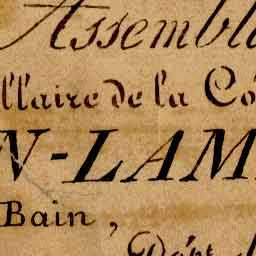 Assembl
llaire de la Co
N-LAM
Bain,
Dépt